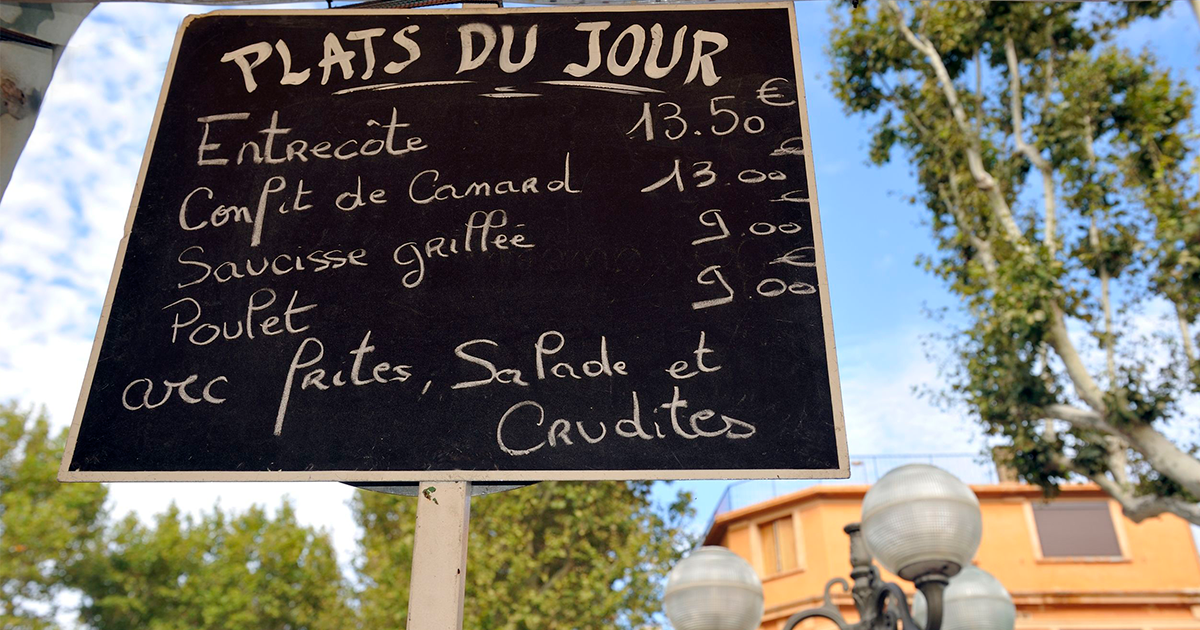 PLATS DU JOUR
Entrecôte 13.50 €
Confit de Canard 13.00 €
Saucisse grillée 9.00 €
Poulet 9.00 €
avec frites, Salade et
Crudites